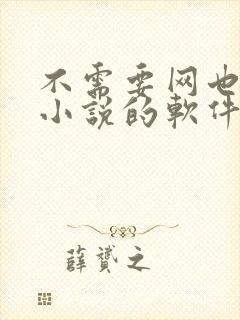 不需要网也
小说的軟件
薛赟之